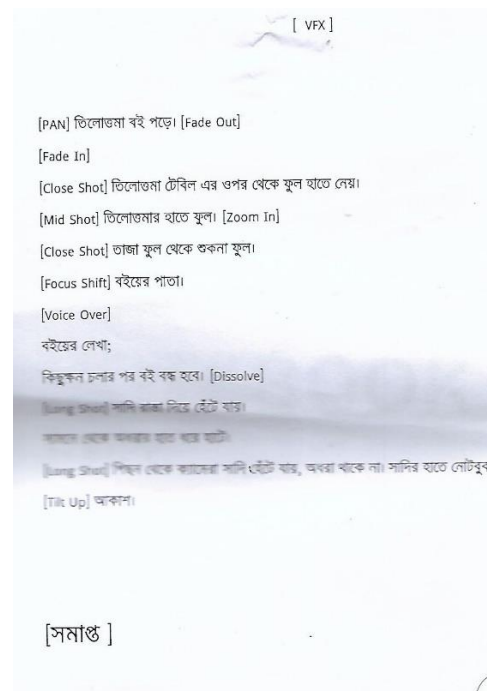 [ VFX ]
[PAN] তিলোত্তমা বই পড়ে। [Fade Out]
[Fade In]
[Close Shot] তিলোত্তমা টেবিল এর ওপর থেকে ফুল হাতে নেয়।
[Mid Shot] তিলোত্তমার হাতে ফুল। [Zoom In]
[Close Shot] তাজা ফুল থেকে শুকনা ফুল।
[Focus Shift] বইয়ের পাতা।
[Voice Over]
বইয়ের লেখা;
কিছুক্ষন চলার পর বই বন্ধ হবে। [Dissolve]
[Long Shot] সাদি রাস্তা দিয়ে হেঁটে যায়।
সামনে থেকে অধরার হাত ধরে হাটে।
[Long Shot] পিছন থেকে ক্যামেরা সাদি হেঁটে যায়, অধরা থাকে না। সাদির হাতে নোটবুক
[Tilt Up] আকাশ।
[সমাপ্ত ]